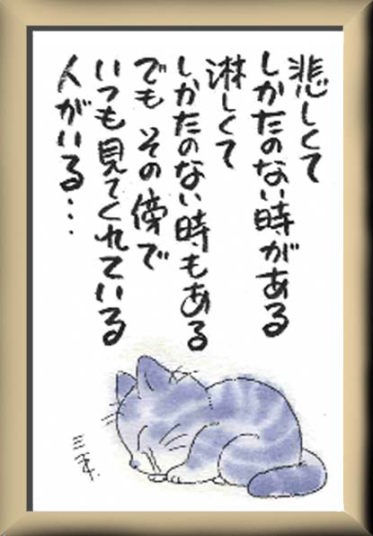 悲しくて
しかたのない時がある
淋しくて
しかたのない時もある
でも その傍で
いつも見てくれている
人がいる…